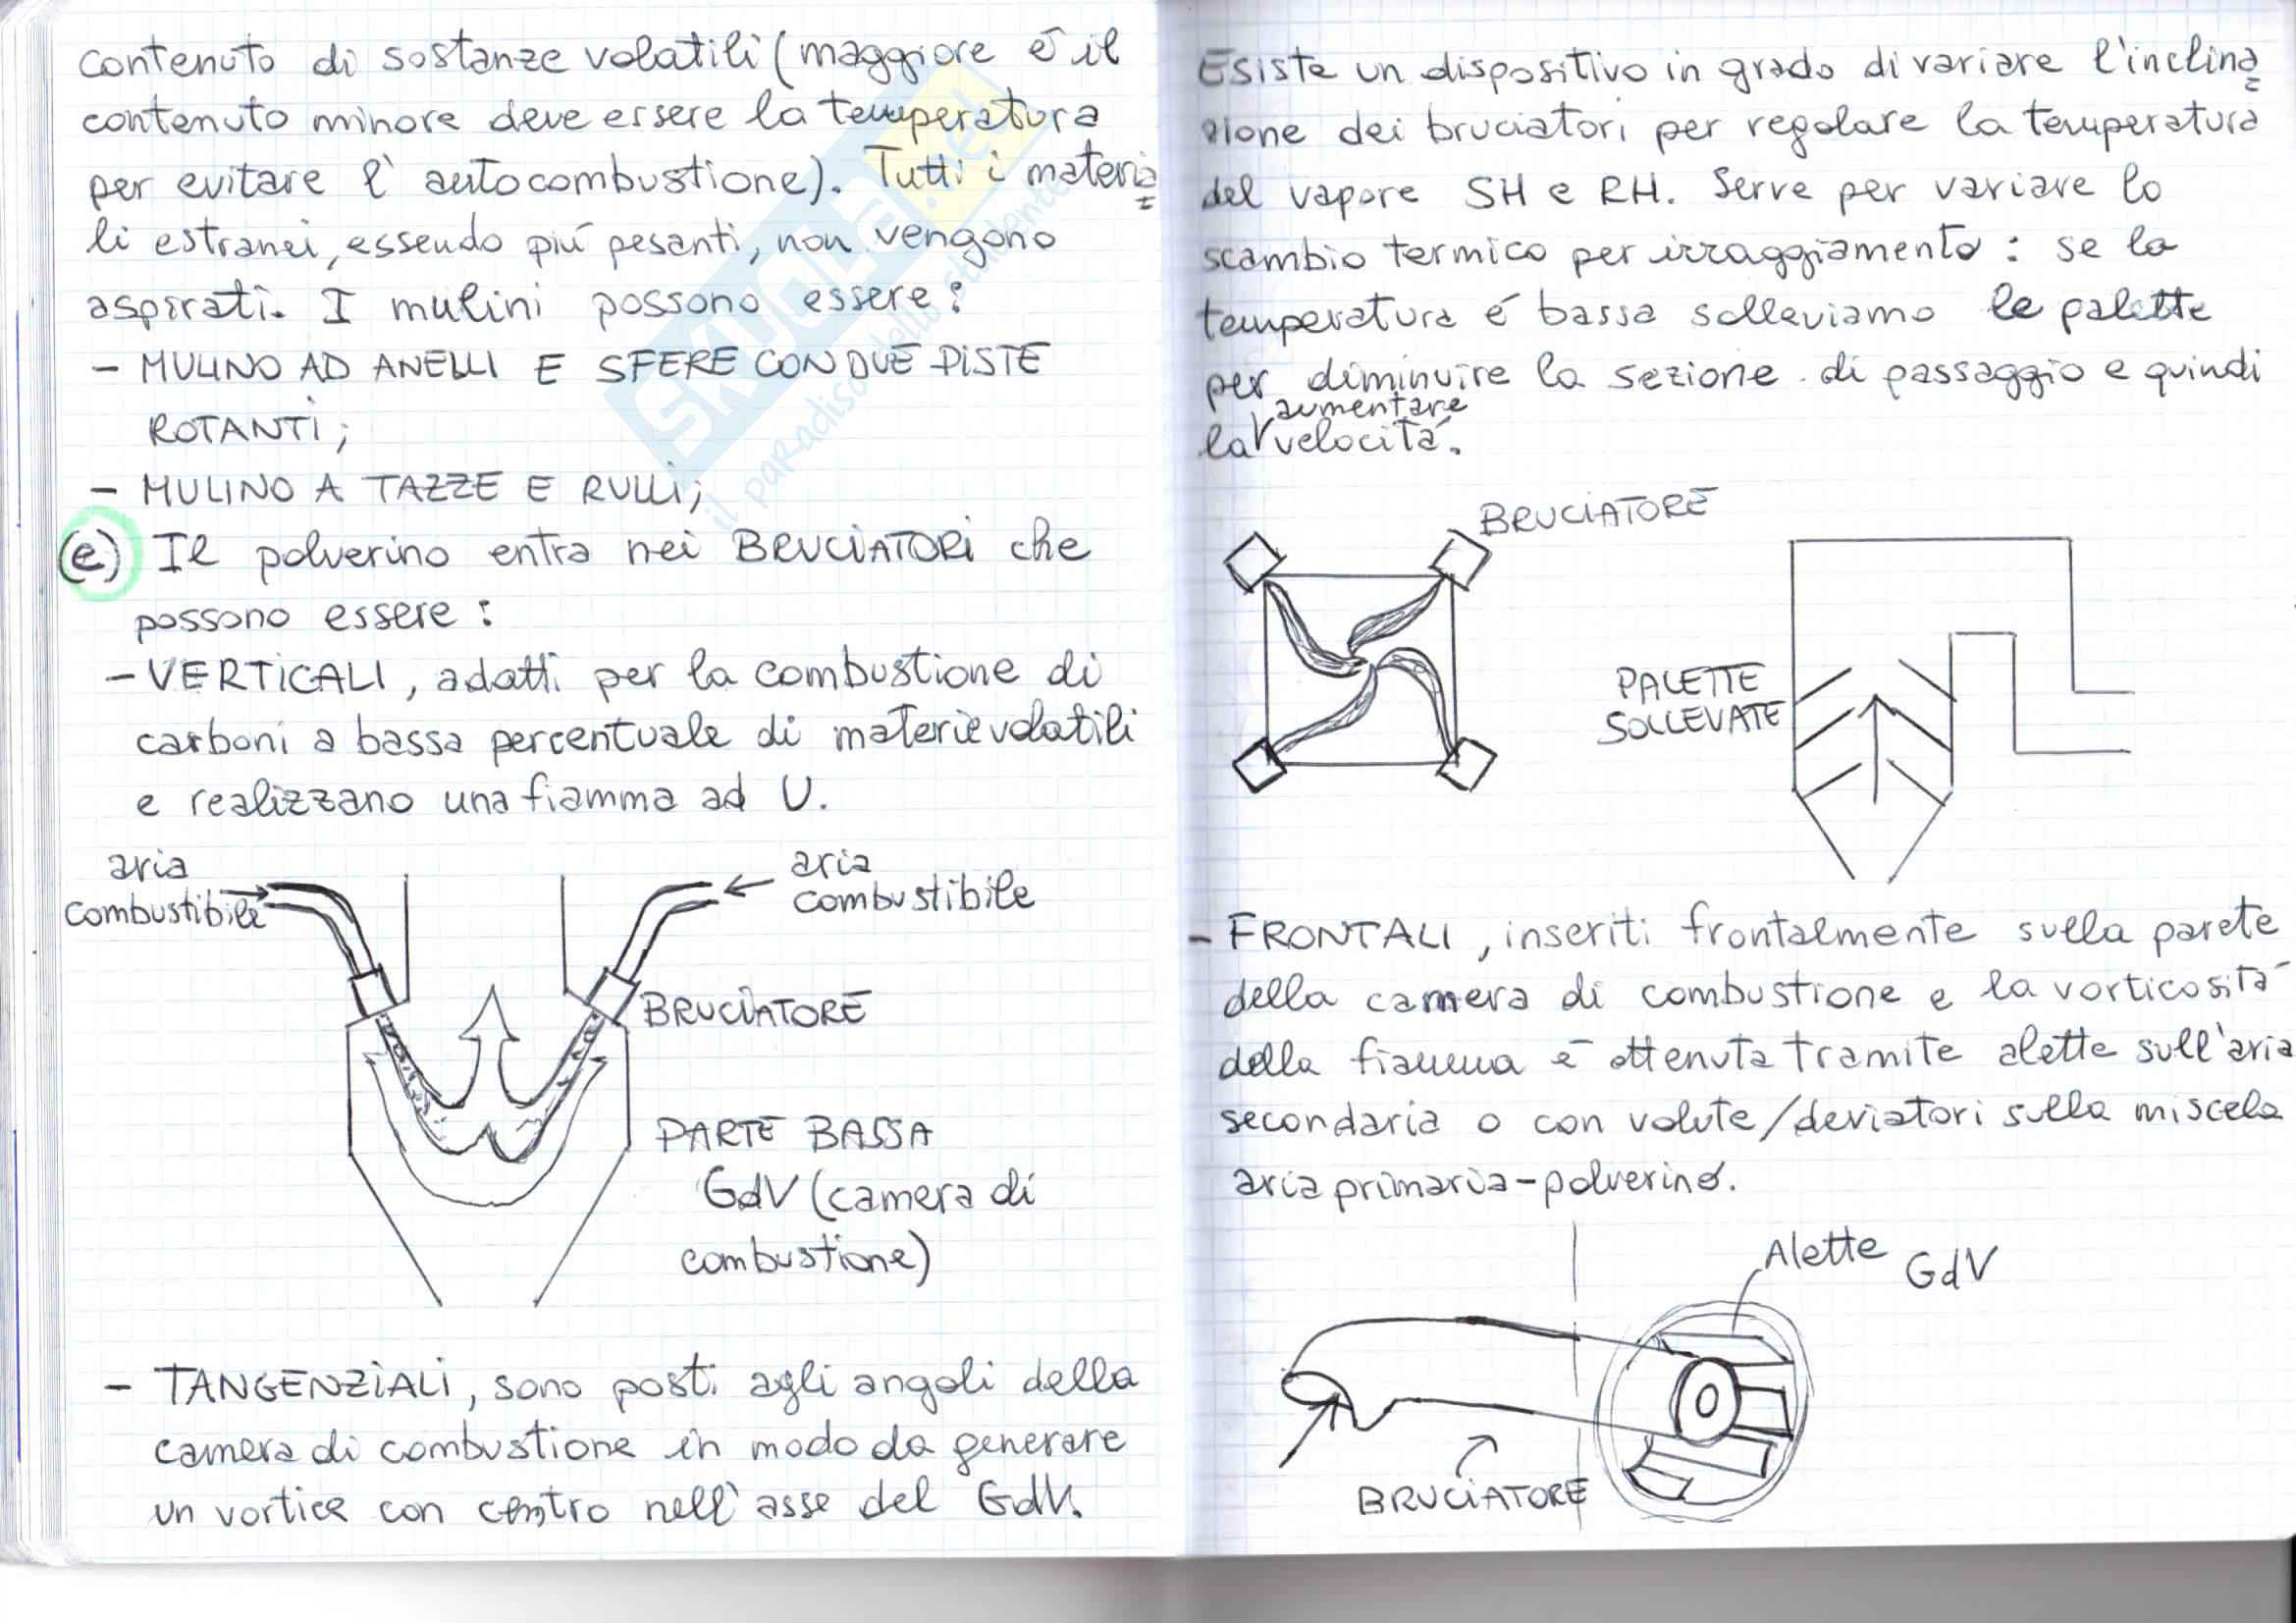 contenuto di sostanze volatili (maggiore è il
contenuto minore deve essere la temperatura
per evitare l'autocombustione). Tutti i materia
li estranei, essendo più pesanti, non vengono
aspirati. I mulini possono essere:
- MULINO AD ANELLI E SFERE CON DUE PISTE
ROTANTI;
- MULINO A TAZZE E RULLI;
(e) Il polverino entra nei BRUCIATORI che
possono essere:
- VERTICALI, adatti per la combustione di
carboni a bassa percentuale di materie volatili
e realizzano una fiamma ad U.
aria
combustibile
aria
combustibile
BRUCIATORE
PARTE BASSA
GdV (camera di
combustione)
- TANGENZIALI, sono posti agli angoli della
camera di combustione in modo da generare
un vortice con centro nell'asse del GdV.
Esiste un dispositivo in grado di variare l'inclina
zione dei bruciatori per regolare la temperatura
del vapore SH e RH. Serve per variare lo
scambio termico per irraggiamento: se la
temperatura è bassa solleviamo le palette
per diminuire la sezione di passaggio e quindi
aumentare
la velocità.
BRUCIATORE
PALETTE
SOLLEVATE
- FRONTALI, inseriti frontalmente sulla parete
della camera di combustione e la vorticosità
della fiamma è ottenuta tramite alette sull'aria
secondaria o con volute/deviatori sulla miscela
aria primaria-polverino.
Alette
GdV
BRUCIATORE
SKUOLA.net
il paradiso dello studente